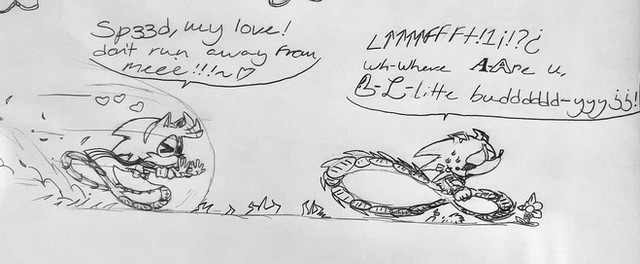 Sp33d, my love!
don't run away from
meee!!!~♡
wh-where A-Are u,
B-L-litte budddddd-yyy